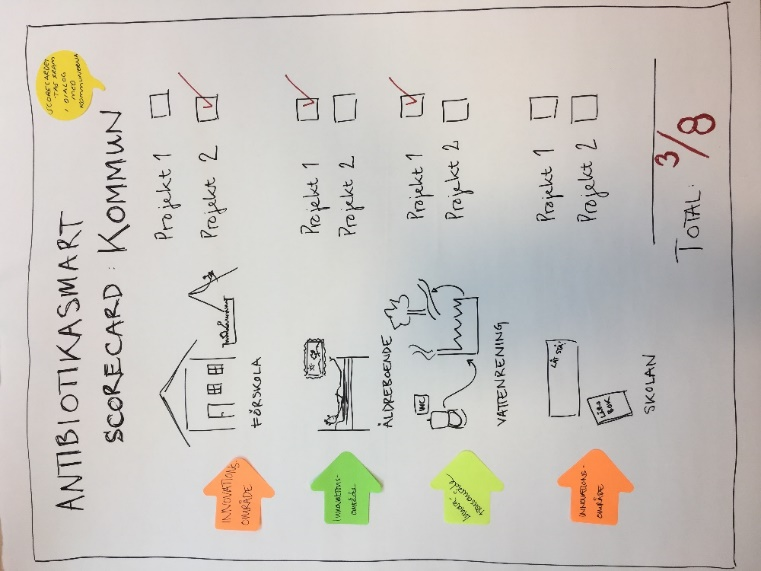 ANTIBIOTIKASMART
SCORECARD: KOMMUN
SCORECARDET
TAS FRAM
I DIALOG
MED
KOMMUNERNA
INNOVATIONS
OMRÅDE
FÖRSKOLA
Projekt 1
Projekt 2
Innovations-
område
ÄLDREBOENDE
Projekt 1
Projekt 2
WC
VATTENRENING
Projekt 1
Projekt 2
INNOVATIONS-
OMRÅDE
LÄRO
BOK
SKOLAN
Projekt 1
Projekt 2
TOTAL: 3/8